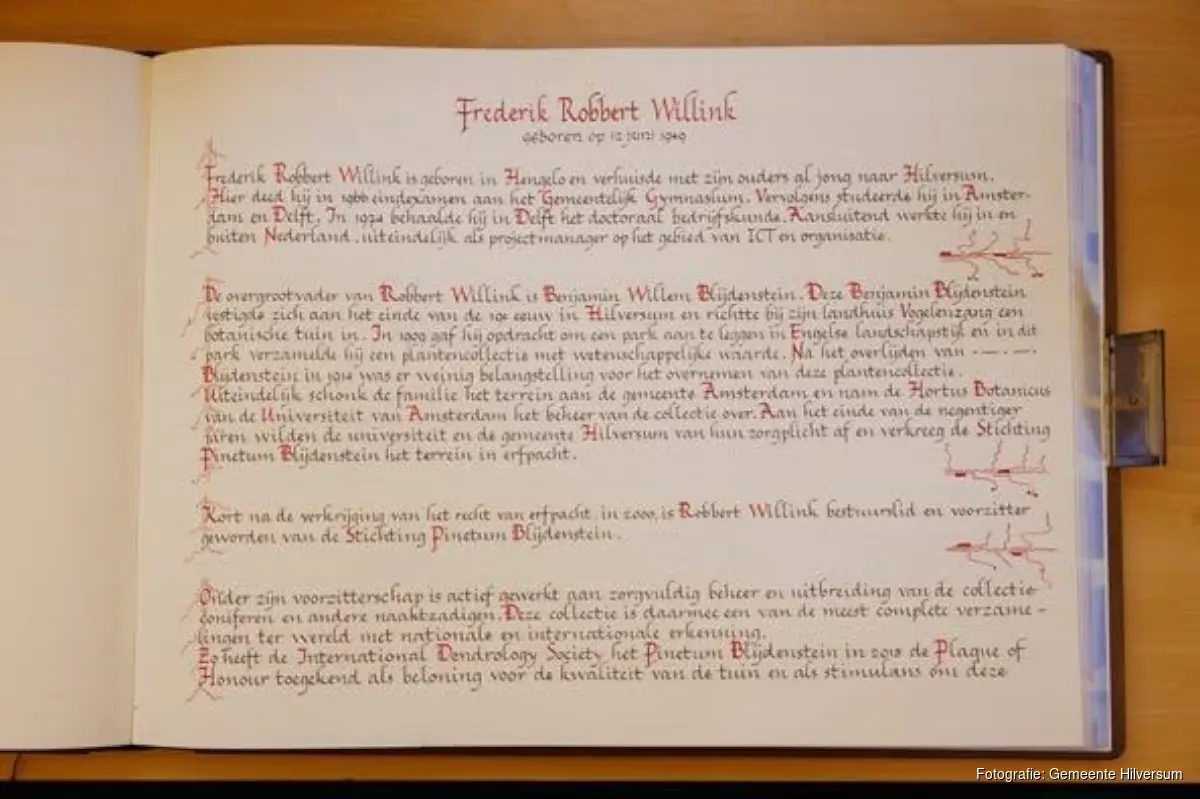 Frederik Robbert Willink
geboren op 12 juni 1949
Frederik Robbert Willink is geboren in Hengelo en verhuisde met zijn ouders al jong naar Hilversum.
Hier deed hij in 1966 eindexamen aan het Gemeentelijk Gymnasium. Vervolgens studeerde hij in Amster-
dam en Delft. In 1974 behaalde hij in Delft het doctoraal bedrijfskunde. Aansluitend werkte hij in en
buiten Nederland, uiteindelijk als projectmanager op het gebied van ICT en organisatie.
De overgrootvader van Robbert Willink is Benjamin Willem Blijdenstein. Deze Benjamin Blijdenstein
vestigde zich aan het einde van de 19e eeuw in Hilversum en richtte bij zijn landhuis Vogelenzang een
botanische tuin in. In 1909 gaf hij opdracht om een park aan te leggen in Engelse landschapstijl en in dit
park verzamelde hij een plantencollectie met wetenschappelijke waarde. Na het overlijden van - — . — .
Blijdenstein in 1914 was er weinig belangstelling voor het overnemen van deze plantencollectie.
Uiteindelijk schonk de familie het terrein aan de gemeente Amsterdam en nam de Hortus Botanicus
van de Universiteit van Amsterdam het beheer van de collectie over. Aan het einde van de negentiger
jaren wilden de universiteit en de gemeente Hilversum van hun zorgplicht af en verkreeg de Stichting
Pinetum Blijdenstein het terrein in erfpacht.
Kort na de verkrijging van het recht van erfpacht, in 2000, is Robbert Willink bestuurslid en voorzitter
geworden van de Stichting Pinetum Blijdenstein.
Onder zijn voorzitterschap is actief gewerkt aan zorgvuldig beheer en uitbreiding van de collectie
coniferen en andere naaktzadigen. Deze collectie is daarmee een van de meest complete verzame-
lingen ter wereld met nationale en internationale erkenning.
Zo heeft de International Dendrology Society het Pinetum Blijdenstein in 2013 de Plaque of
Honour toegekend als beloning voor de kwaliteit van de tuin en als stimulans om deze
Fotografie: Gemeente Hilversum